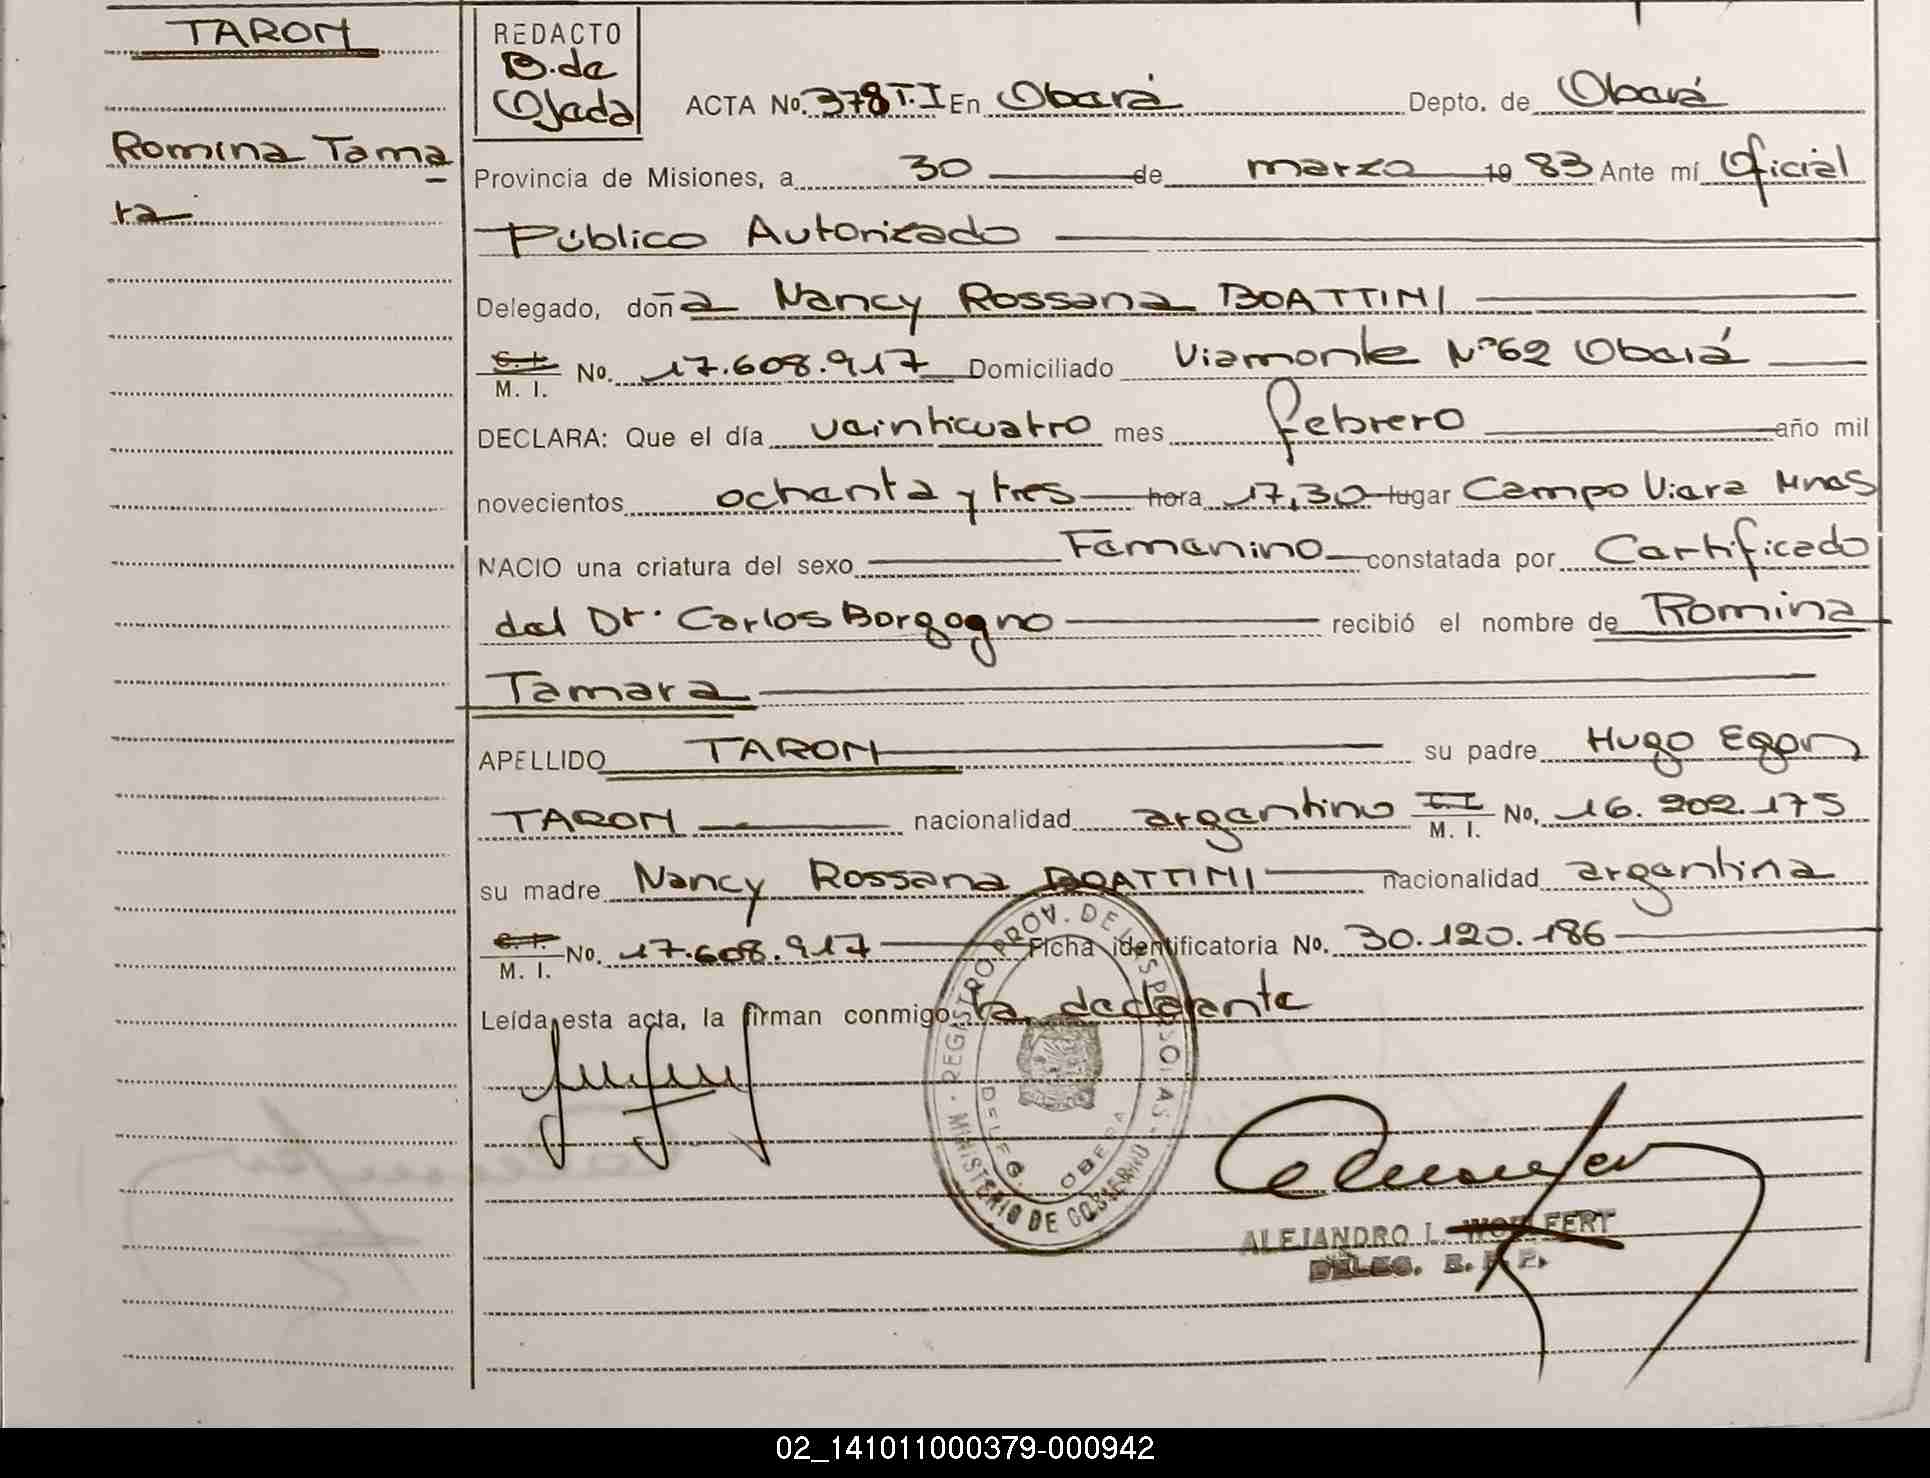 TARON
Romina Tama
ra
REDACTO
B. de
Ojada
ACTA No. 378 T. I En Oberá Depto. de Oberá
Provincia de Misiones, a 30 de marzo 19 83 Ante mí Oficial
Público Autorizado
Delegado, doña Nancy Rossana BOATTINI
C. I.
M. I. No. 17.608.917 Domiciliado Viamonte Nº 62 Oberá
DECLARA: Que el día veinticuatro mes febrero año mil
novecientos ochenta y tres hora 17,30 lugar Campo Viera Mnes
NACIO una criatura del sexo Femenino constatada por Certificado
del Dr. Carlos Borgogno recibió el nombre de Romina
Tamara
APELLIDO TARON su padre Hugo Egon
TARON nacionalidad argentino M. I. No. 16.202.175
su madre Nancy Rossana BOATTINI nacionalidad argentina
C. I.
M. I. No. 17.608.917 Ficha identificatoria No. 30.120.186
Leída esta acta, la firman conmigo la declarante
REGISTRO PROV. DE LAS PERSONAS
MINISTERIO DE GOBIERNO
DELEG. OBERA
ALEJANDRO L. WOLFERT
DELEG. R. P. P.
02_141011000379-000942